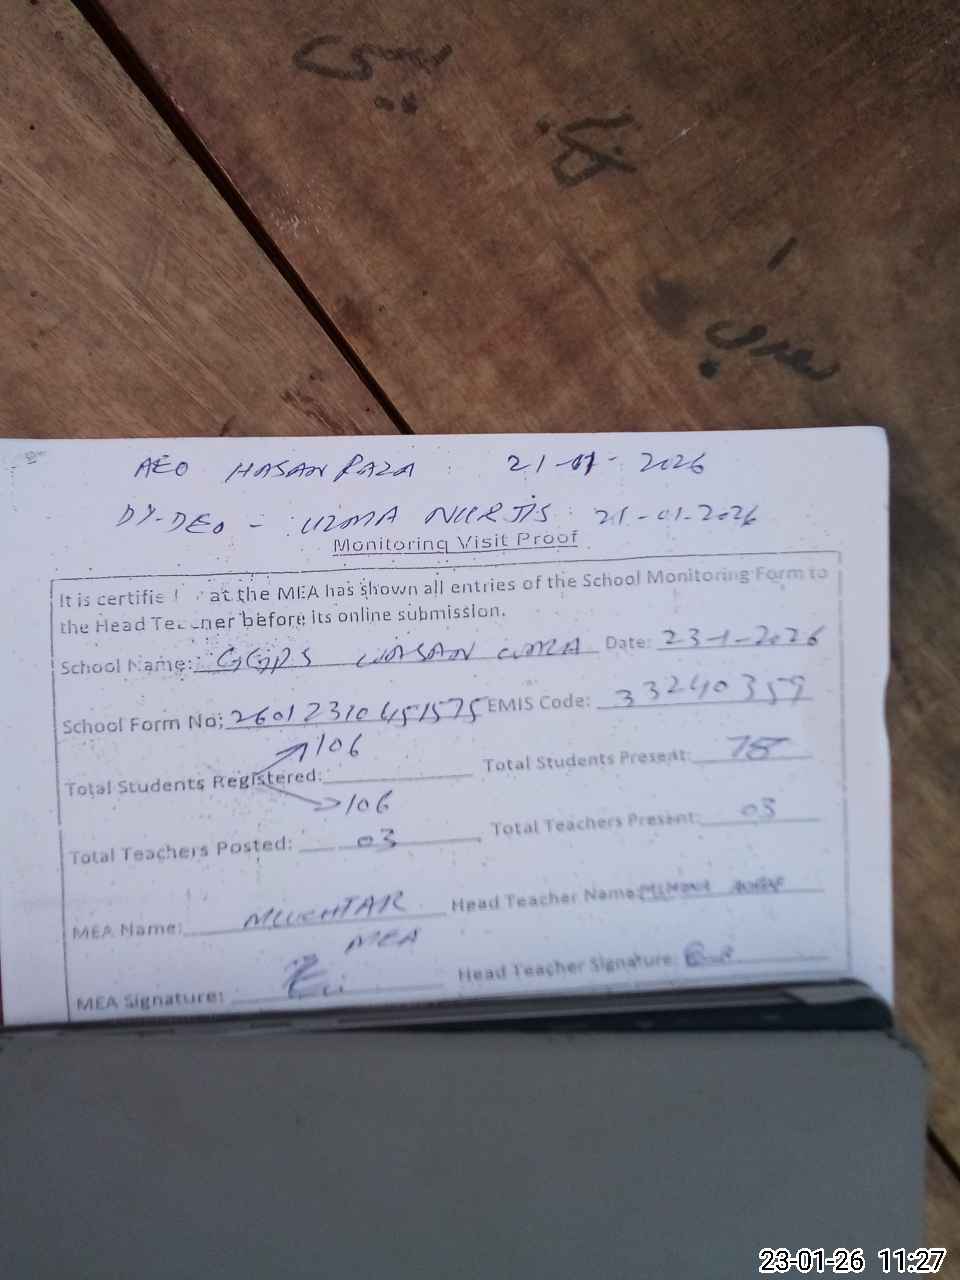 AEO HASAN RAZA 21-01-2026
DY-DEO - UZMA NURJIS 21-01-2026
Monitoring Visit Proof
It is certifie at the MEA has shown all entries of the School Monitoring Form to
the Head Teacher before its online submission.
School Name: GGPS WASAN WALA Date: 23-1-2026
School Form No: 26012310451575 EMIS Code: 33240359
106
Total Students Registered: Total Students Present: 78
106
Total Teachers Posted: 03 Total Teachers Present: 03
MEA Name: MUKHTAR Head Teacher Name:
MEA
MEA Signature: Head Teacher Signature:
23-01-26 11:27